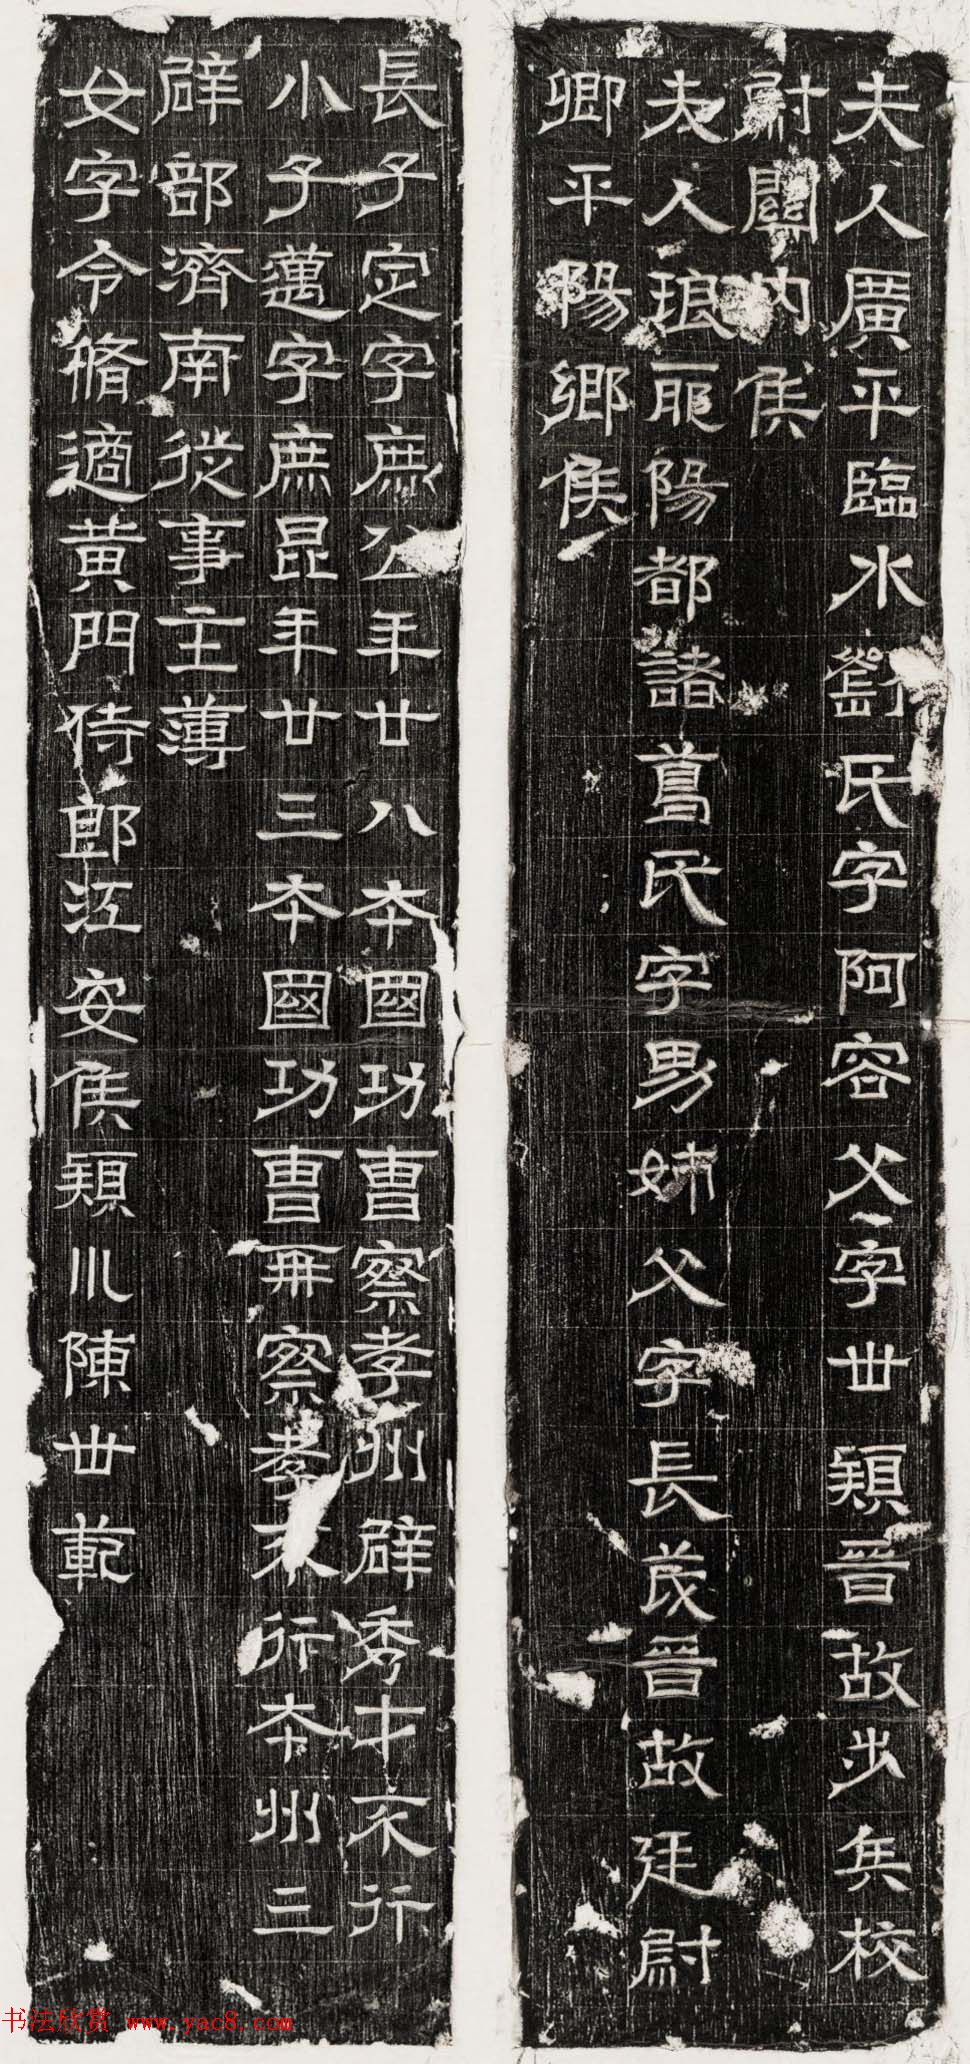 夫人廣平臨水劉氏字阿容父字世穎晉故步兵校
尉關內侯
夫人琅耶陽都諸葛氏字男姊父字長茂晉故廷尉
卿平陽鄉侯
長子定字庶公年廿八本國功曹察孝州辟秀才不行
小子邁字庶昆年廿三本國功曹再察孝不行本州三
辟部濟南從事主薄
女字令脩適黃門侍郎江安侯潁川陳世範
书法欣赏 www.yac8.com